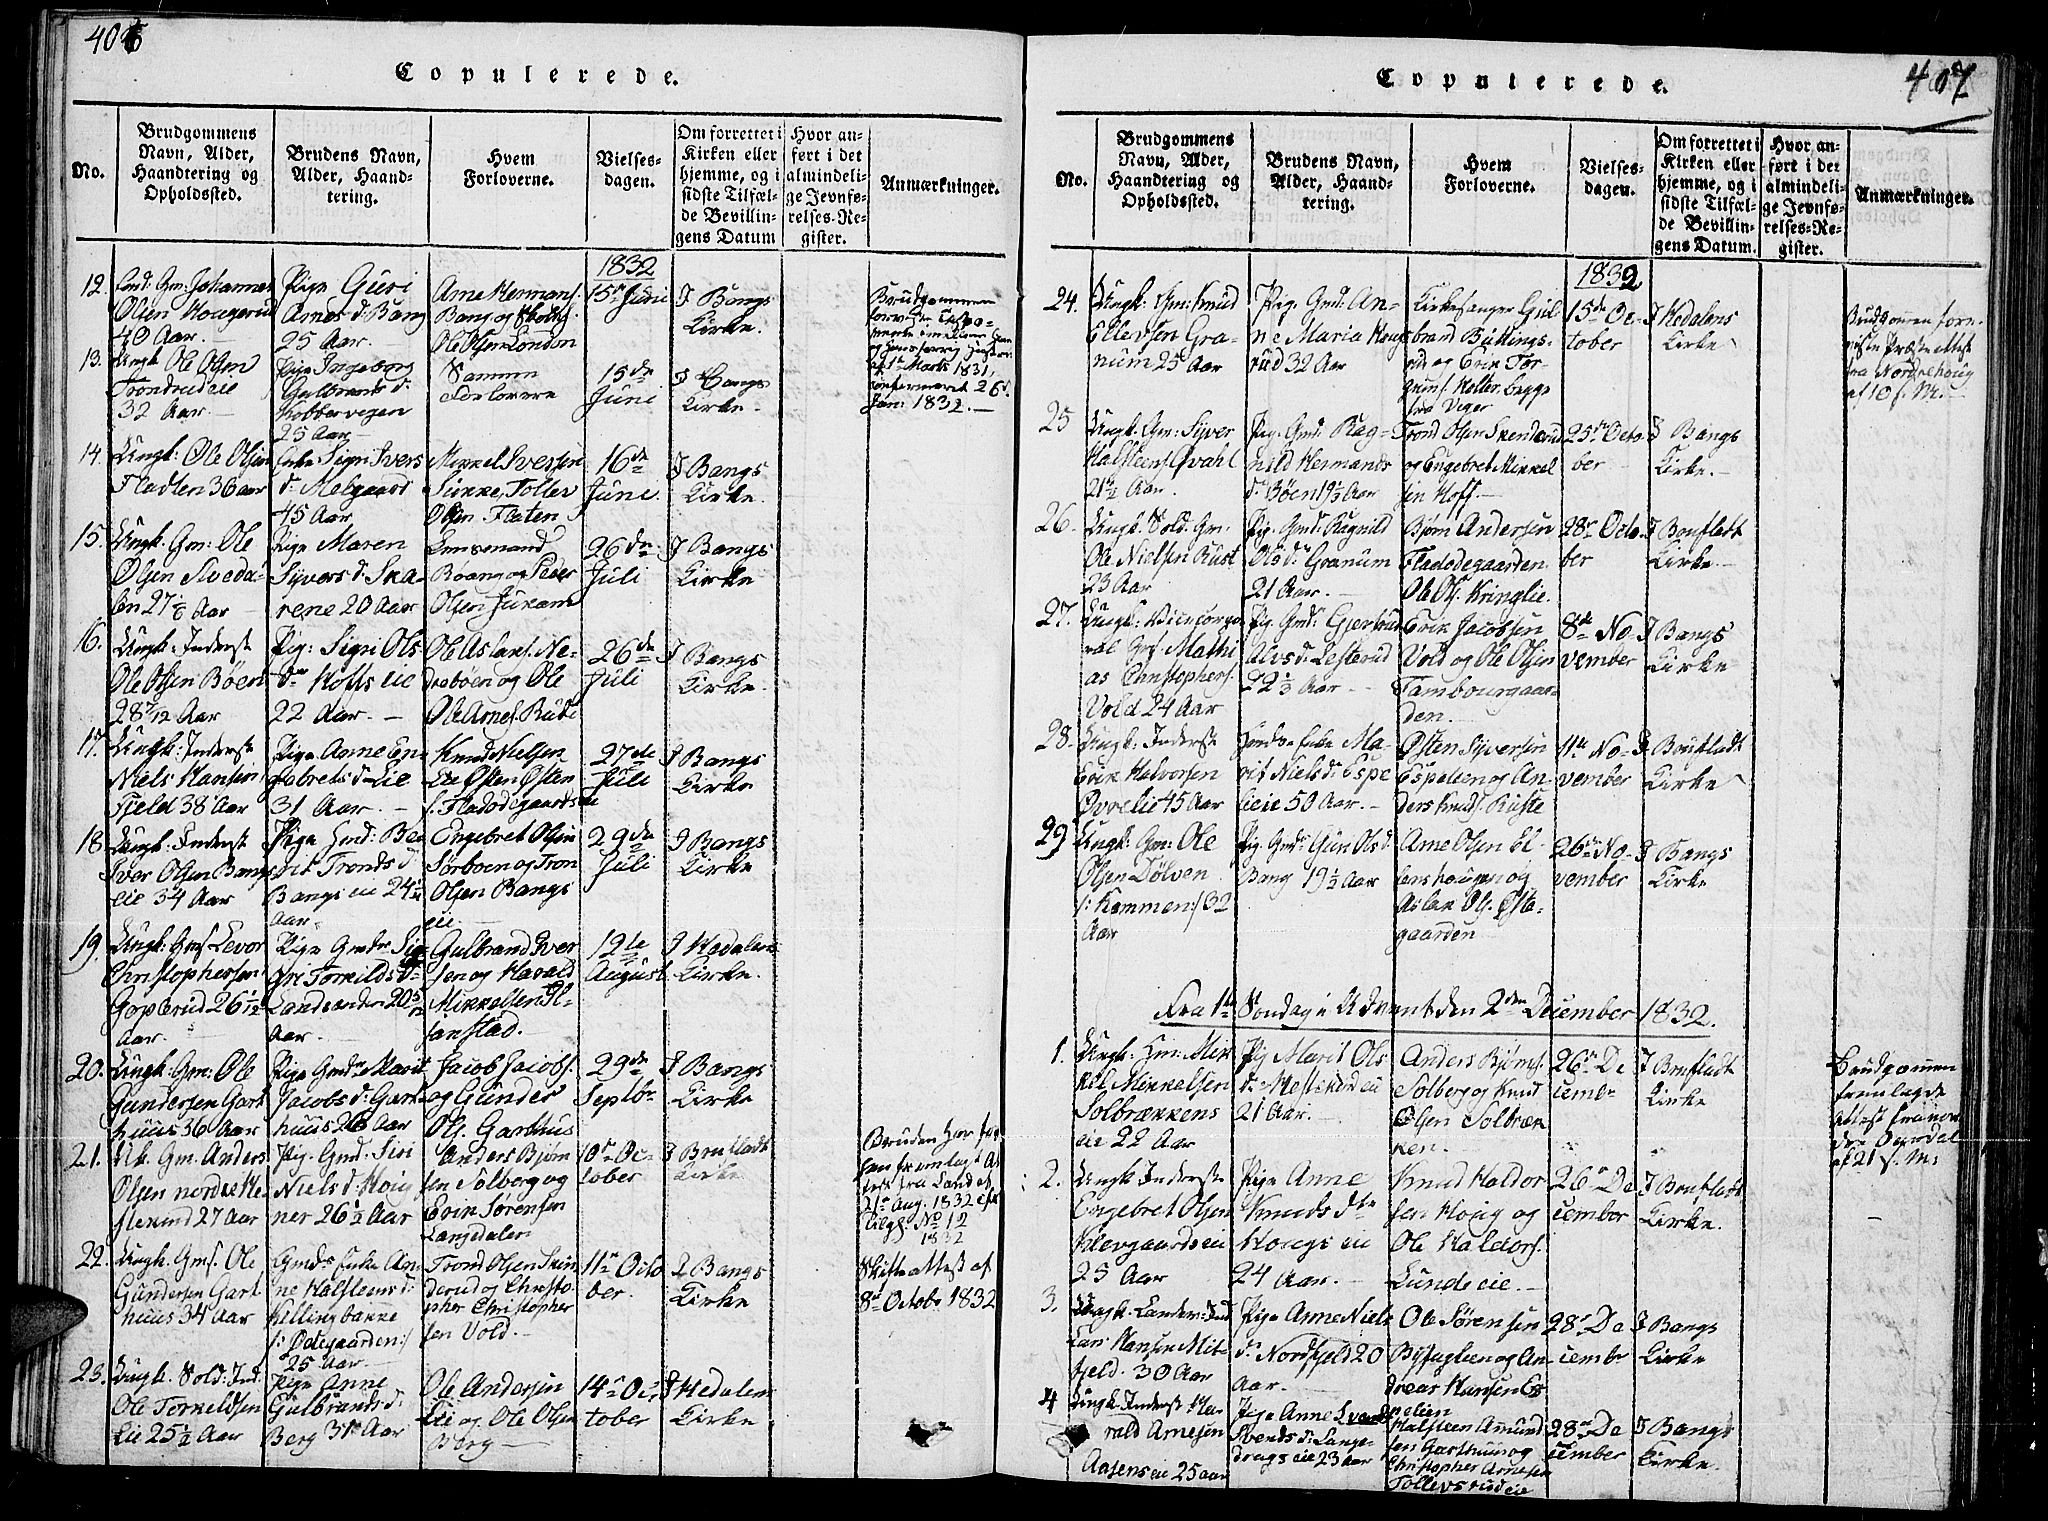 406
Copulerede.
No.
Brudgommens Navn, Alder, Haandtering og Opholdssted.
Brudens Navn, Alder, Haandtering.
Hvem Forloverne.
Vielsesdagen.
Om forrettet i Kirken eller hjemme, og i sidste Tilfælde Bevillingens Datum
Hvor anført i det almindelige Jevnførelses-Register.
Anmærkninger.
1832
12.
Olsen Hougerud
40 Aar.
Pige Guri
Arnes d. Bang
25 Aar.
Arne Hermans.
Bang og
Ole Olsen London
15de Juni
I Bangs
Kirke.
Brudgommen
1ste Marts 1831,
confirmeret 26
Jan: 1832.
13.
Ungk. Ole Olsen
Trondrudeie
32 Aar.
Pige Ingeborg
Gulbrands d.
Kobbervegen
25 Aar
Samme
Forlovere
15de
Juni
I Bangs
Kirke.
14.
Ungk: Ole Olsen
Fladlen 36 aar
Enke Sigri Ivers
d. Melgaard
45 Aar
Mikkel Iversen
Tollev
Olsen Flaten
16de
Juni
I Bangs
Kirke.
15.
Ungk. Gm: Ole
Olsen
27 1/6 Aar
Pige Maren
Syvers d. Ska-
rene 20 Aar
Lensmand
Bøang og Peder
Olsen Juram
26de
Juli
I Bangs
Kirke
16.
Ungk: Inderst
Ole Olsen Bøen
28 7/12 Aar
Pig: Sigri Ols
dr Hoffs eie
22 Aar.
Ole Aslaks. Ne-
drebøen og Ole
Ole Arnes. Rudi
26de
Juli
I Bangs
Kirke.
17.
Ungk: Inderste
Niels Hansen
Fjeld 38 Aar
Pige Anne En-
gebrets d. Lie
31 Aar.
Knud Nielsen
Lie Østen Østen
s. Fladødegaarden
27de
Juli
I Bangs
Kirke
18
Ungk: Inderst
Iver Olsen Bangs
eie 34 Aar
Pige Gmd: Be-
rit Tronds d.
Bangs eie 24
Aar.
Engebret Olsen
Sørboen og Tron
Olsen Bangs
eie.
29de
Juli
I Bangs
Kirke
19.
Ungk: Gms Levor
Christophersen
Goplerud 26 1/2
Aar.
Pige Gmdr Sig-
gri Torkilds d.
Landsenden 20
Aar.
Gulbrand Iver
sen og Harald
Mikkelsen El-
jenstad.
19de
August
I Hedalens
Kirke.
20.
Ungk: Gm: Ole
Gundersen Gart
huus 36 Aar
Pige Gmdr Marit
Jacobs d. Gart-
huus 26 Aar
Jacob Jacobs.
og Gunder
Ols. Garthus
29de
Septbr
I Bangs
Kirke
21.
Uk. Gm. Anders
Olsen nordre He-
27 Aar
Pig. Gmd. Siri
Niels d. Houg
ner 26 1/2 Aar
Anders Bjørn
sen Solberg og
Erik Sørensen
Langedalen
10de Oc-
tober
I Brufladt
Kirke
Bruden har for-
hen fremlagt At-
test fra Land af
21de Aug. 1832
Bilag No 12
1832
22.
Ungk. Gms. Ole
Gundersen Gart
huus 34 Aar
Gmds Enke An-
ne Halsteens d.
Kellingbakke
/: Ødegaarden :/
25 Aar
Trond Olsen Skin
derud og Christo-
pher Christopher
sen Vold.
11de Octo
ber.
I Bangs
Kirke
Skifteattest af
8de Octobr 1832
23.
Ungk. Sold: Ind.
Ole Torkeldsen
Lie 25 1/2 Aar
Pige Anne
Gulbrands d.
Berg 31 Aar
Ole Andersen
Lie og Ole Olsen
Berg
14de Oc-
tober
I Hedalen
Kirke
407
Copulerede.
No.
Brudgommens Navn, Alder, Haandtering og Opholdssted.
Brudens Navn, Alder, Haandtering.
Hvem Forloverne.
Vielsesdagen.
Om forrettet i Kirken eller hjemme, og i sidste Tilfælde Bevillingens Datum.
Hvor anført i det almindelige Jevnførelses-Register.
Anmærkninger.
1832
24.
Ungk: Gm: Knud
Ellevsen Gra-
num 25 Aar
Pig. Gmd: An-
ne Maria Houg-
rud 32 Aar
Kirkesanger Gul-
brand Buttings-
rud og Erik Tor-
Holte. begge
fra Veger
15de Oc-
tober
I Hedalens
Kirke
Brudgommen frem-
viste Præsteattest
fra Norderhoug
af 10 s. M.
25
Ungk: Gm: Syver
Halsteens. Qvahl
21 Aar
Pig. Gmd: Rag-
nild Hermands
d. Bøen 19 1/2 Aar
Trond Olsen Skenderud
og Engebret Mikkel
sen Hoff.
25de Octo
ber
I Bangs
Kirke.
26.
Ungk. Sold. Gm.
Ole Nielsen Rust
23 Aar
Pig. Gmd. Ragnild
Ols d. Granum
21 Aar.
Bjørn Andersen
Fladødegaarden
Ole Ols. Kringlie.
28de Octo
ber
I Brufladt
Kirke.
27.
Ungk. Vicecorpo-
ral Gms. Mathi
as Christophers.
Vold 24 Aar
Pig. Gmd. Gjertrud
Alvs d. Lesterud
22 1/3 Aar
Erik Jacobsen
Vold og Ole Olsen
Tambourgaar-
den.
8de No-
vember
I Bangs
Kirke
28.
Ungk: Inderste
Erik Halvorsen
Øvrelie 45 Aar
Enke Ma-
rit Niels d. Espe
lieie 50 Aar.
Østen Syversen
Espelien og An-
ders Knuds. Ruste
11te No-
vember
I Brufladt
Kirke
29
Ungk: Gm: Ole
Olsen Dølven
/: Kommen :/ 32
Aar
Pig. Gmd: Guri Ols d.
Bang 19 1/2 Aar
Arne Olsen El-
lenshaugen og
Aslak Ols. Øde-
gaarden
26de No-
vember
I Bangs
Kirke
Fra 1ste Søndag i Advent den 2den December 1832.
1.
Ungk: Gm: Mik
kel Mikkelsen
Solbrækkens
eie 22 Aar
Pig Marit Ols
d. eie
21 Aar.
Anders Bjørns.
Solberg og Knud
Olsen Solbræk
ken.
26de De
cembr
I Bruflad
Kirke
Brudgommen
fremlagde
Attest fra nor-
dre Aurdal
af 21 s. M:
2.
Ungk Inderste
Engebret Olsen
Klevgaards eie
25 Aar
Pige Anne
Knuds dtr
Hougs eie
24 Aar.
Knud Haldor
sen Houg og
Ole Haldors.
Lunde eie.
26de De
cember
I Bruflad
Kirke.
3.
Ungk.
Lars Hansen Mit-
fjeld. 30 Aar
Pige Anne Niels
d. Nordfjeld 20
Aar.
Ole Sørensen
og An-
dreas Hansen Es
pelien
28de De
cembr
I Bangs
Kirke
4
Ungk. Inderst Ha-
rald Arnesen
Aasens eie 25 aar
Pige Anne
Svends d. Lange-
drags eie 23 aar
Halsteen Amund
sen Garthuus og
Christopher Arnesen
Tollevsrudeie
28de De
cember
I Bangs
Kirke.